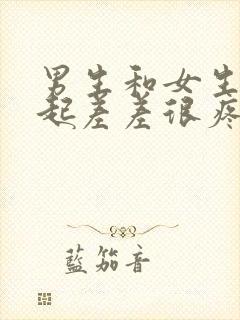 男生和女生
起差差很疼
藍笳音